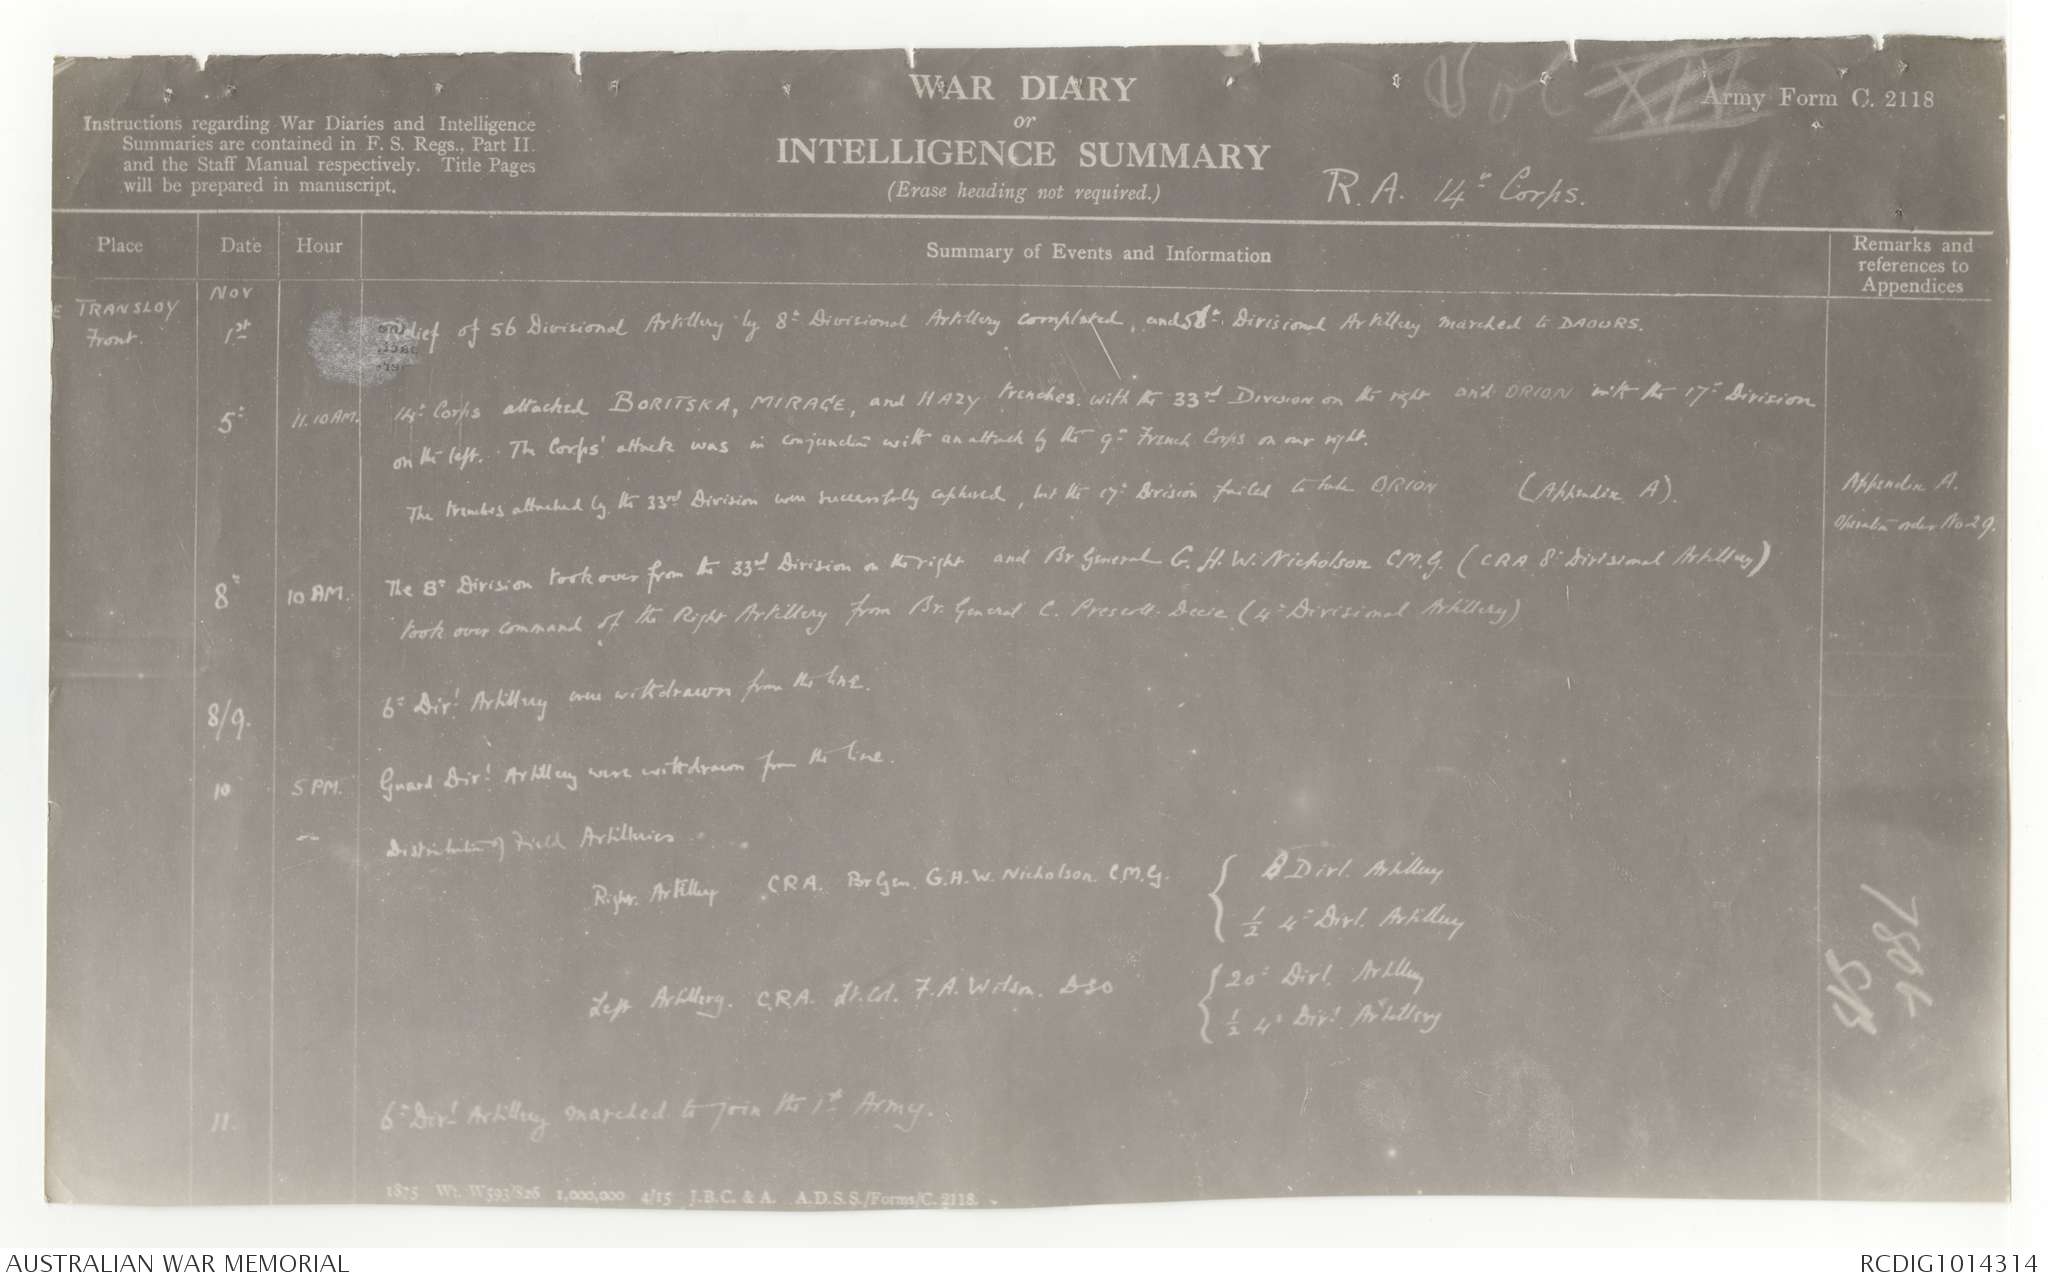 WAR DIARY
or
INTELLIGENCE SUMMARY
(Erase heading not required.)
Instructions regarding War Diaries and Intelligence
Summaries are contained in F. S. Regs., Part II.
and the Staff Manual respectively. Title Pages
will be prepared in manuscript.
Vol XIV
Army Form C. 2118
11
R.A. 14th Corps.
Place Date Hour Summary of Events and Information Remarks and
references to
Appendices
E TRANSLOY
Front.
Nov
1st Relief of 56 Divisional Artillery by 8th Divisional Artillery completed, and 56th Divisional Artillery marched to DAOURS.
5th 11.10 AM. 14th Corps attacked BORITSKA, MIRAGE, and HAZY trenches with the 33rd Division on the right and ORION with the 17th Division
on the left. The Corps' attack was in conjunction with an attack by the 9th French Corps on our right.
The trenches attacked by the 33rd Division were successfully captured, but the 17th Division failed to take ORION (Appendix A). Appendix A.
Operation order No 29.
8th 10 AM. The 8th Division took over from the 33rd Division on the right and Br General G. H. W. Nicholson CMG. (CRA 8th Divisional Artillery)
took over command of the Right Artillery from Br. General C. Prescott-Decie (4th Divisional Artillery)
8/9. 6th Divl Artillery were withdrawn from the line.
10 5 PM. Guard Divl Artillery were withdrawn from the line.
— Distribution of Field Artilleries
Right Artillery CRA. Br Gen. G.H.W. Nicholson. C.M.G. { 8 Divl. Artillery
1/2 4th Divl. Artillery
Left Artillery. CRA. Lt. Col. F.A. Wilson. DSO { 20th Divl. Artillery
1/2 4th Divl Artillery
11. 6th Divl Artillery marched to join the 1st Army.
1875 Wt. W593/826 1,000,000 4/15 J.B.C. & A. A.D.S.S./Forms/C. 2118.
AUSTRALIAN WAR MEMORIAL
RCDIG1014314